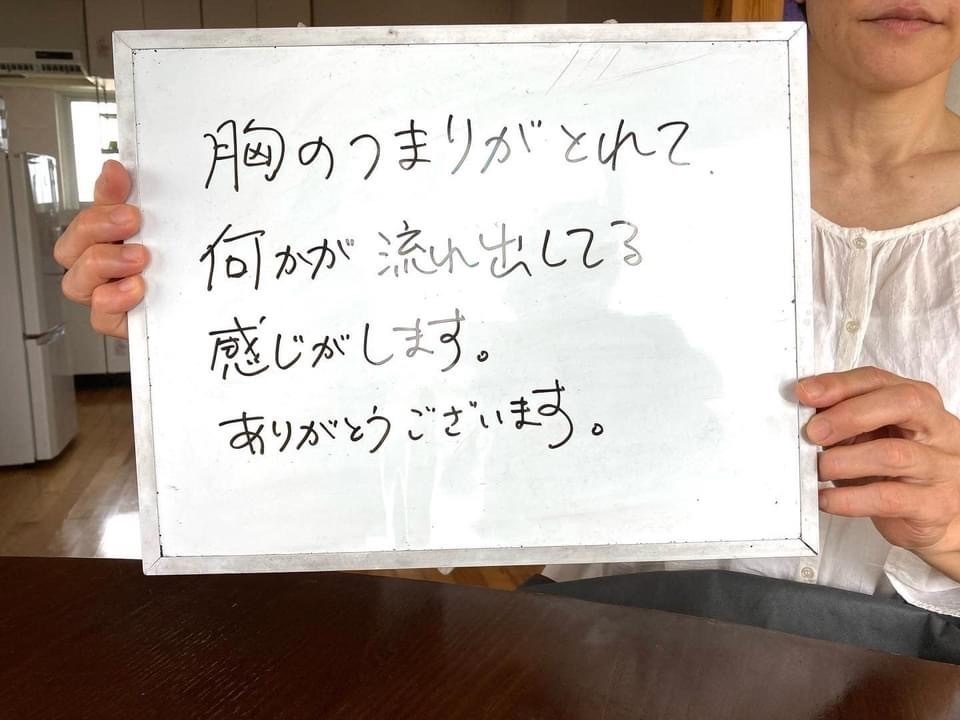 胸のつまりがとれて
何かが流れ出してる
感じがします。
ありがとうございます。